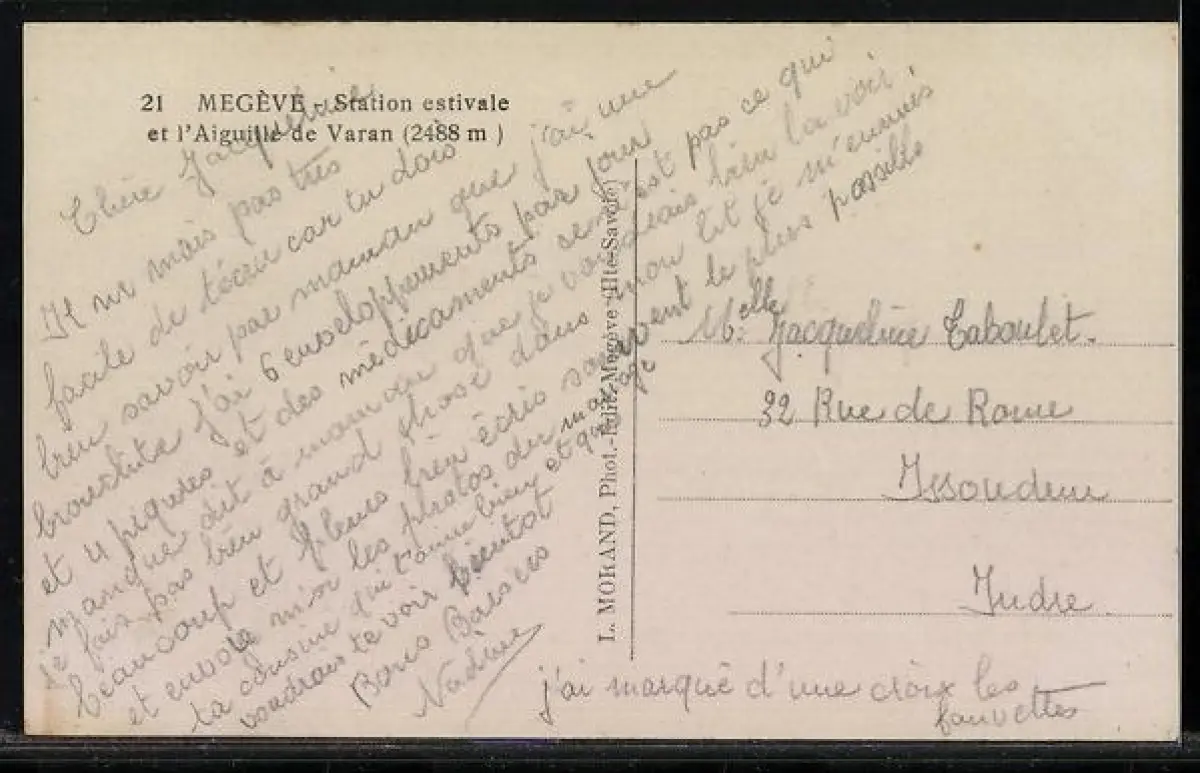 21 MEGÈVE - Station estivale
et l'Aiguille de Varan (2488 m )
Chère Jacqueline
Il ne mais pas très
facile de técrir car tu dois
bien savoir par maman que j'ai une
bronchite j'ai 6 enveloppements par jour
et 4 piqures et des médicaments ce n'est pas ce qui
manque dit à maman que je voudrais bien la voir.
je fais pas bien grand chose dans mon lit je m'ennuies
beaucoup et pleure bien écris souvent le plus possible
et envoie moi les photos du mariage
ta cousine qui t'aime bien et qui
voudrais te voir bientot
Bons Baisers
Nadine
L. MORAND, Phot.-Edit. Megève (Hte-Savoie)
Melle Jacqueline Taboulet.
32 Rue de Rome
Issoudun
Indre.
j'ai marqué d'une croix les
fauvettes